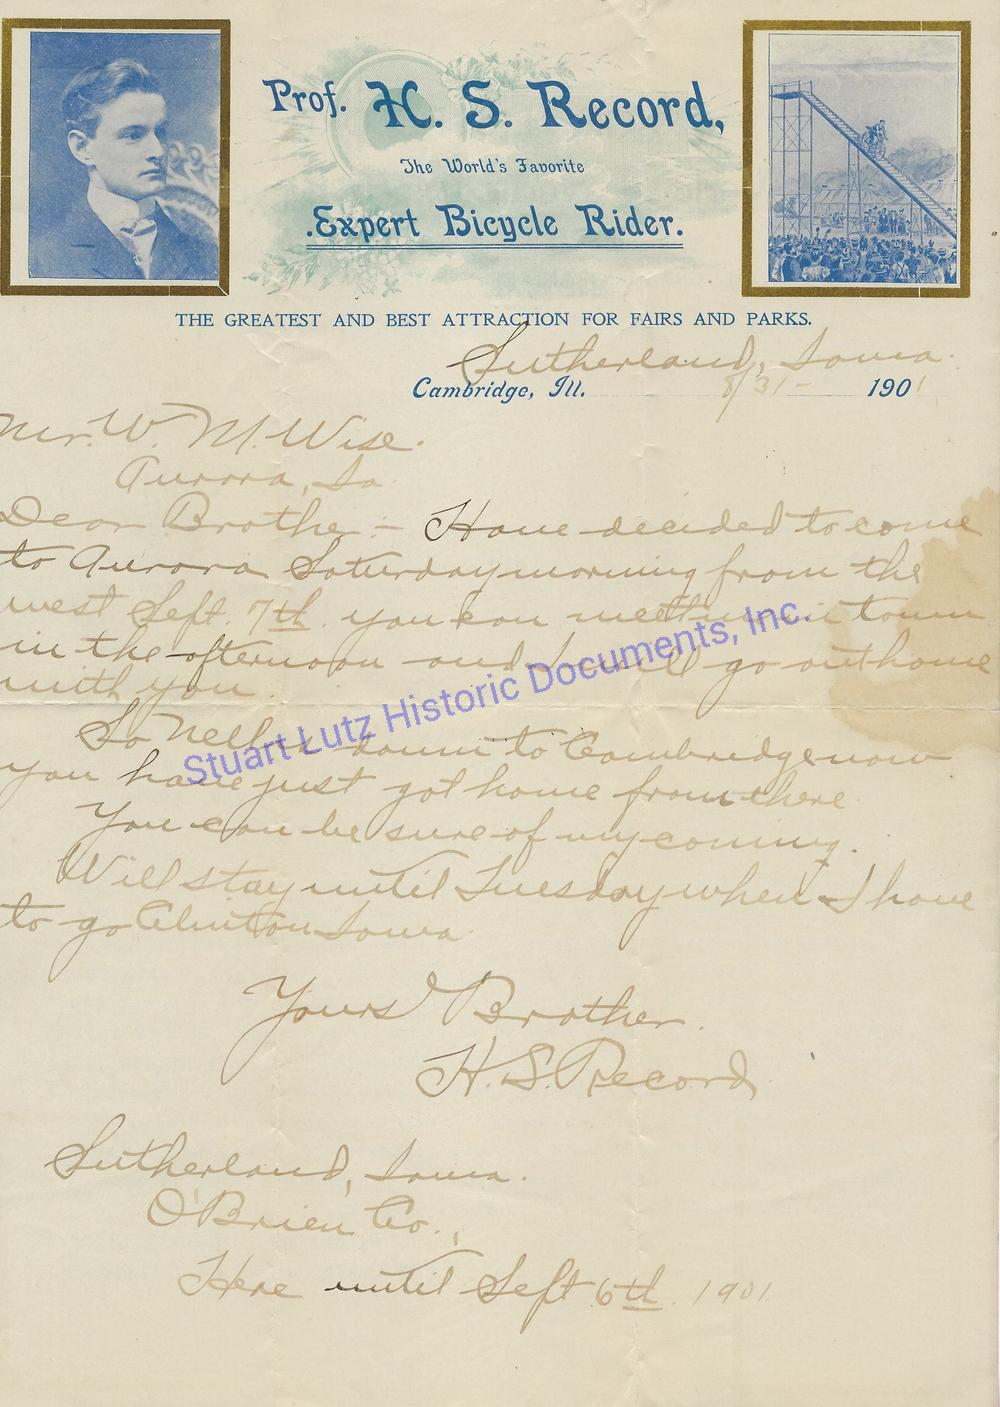 Prof. H. S. Record,
The World's Favorite
.Expert Bicycle Rider.
THE GREATEST AND BEST ATTRACTION FOR FAIRS AND PARKS.
Sutherland, Iowa.
Cambridge, Ill. 8/31- 1901
Mr. W. M. Wise.
Aurora, Ia.
Dear Brother:- Have decided to come
to Aurora Saturday morning from the
west Sept. 7th. you can meet me in town
in the afternoon and I will go out home
with you.
So Nell is down to Cambridge now
you have just got home from there
You can be sure of my coming.
Will stay until Tuesday when I have
to go Clinton Iowa
Yours Brother.
H. S. Record
Sutherland, Iowa.
O'Brien Co.,
Here until Sept 6th. 1901
Stuart Lutz Historic Documents, Inc.